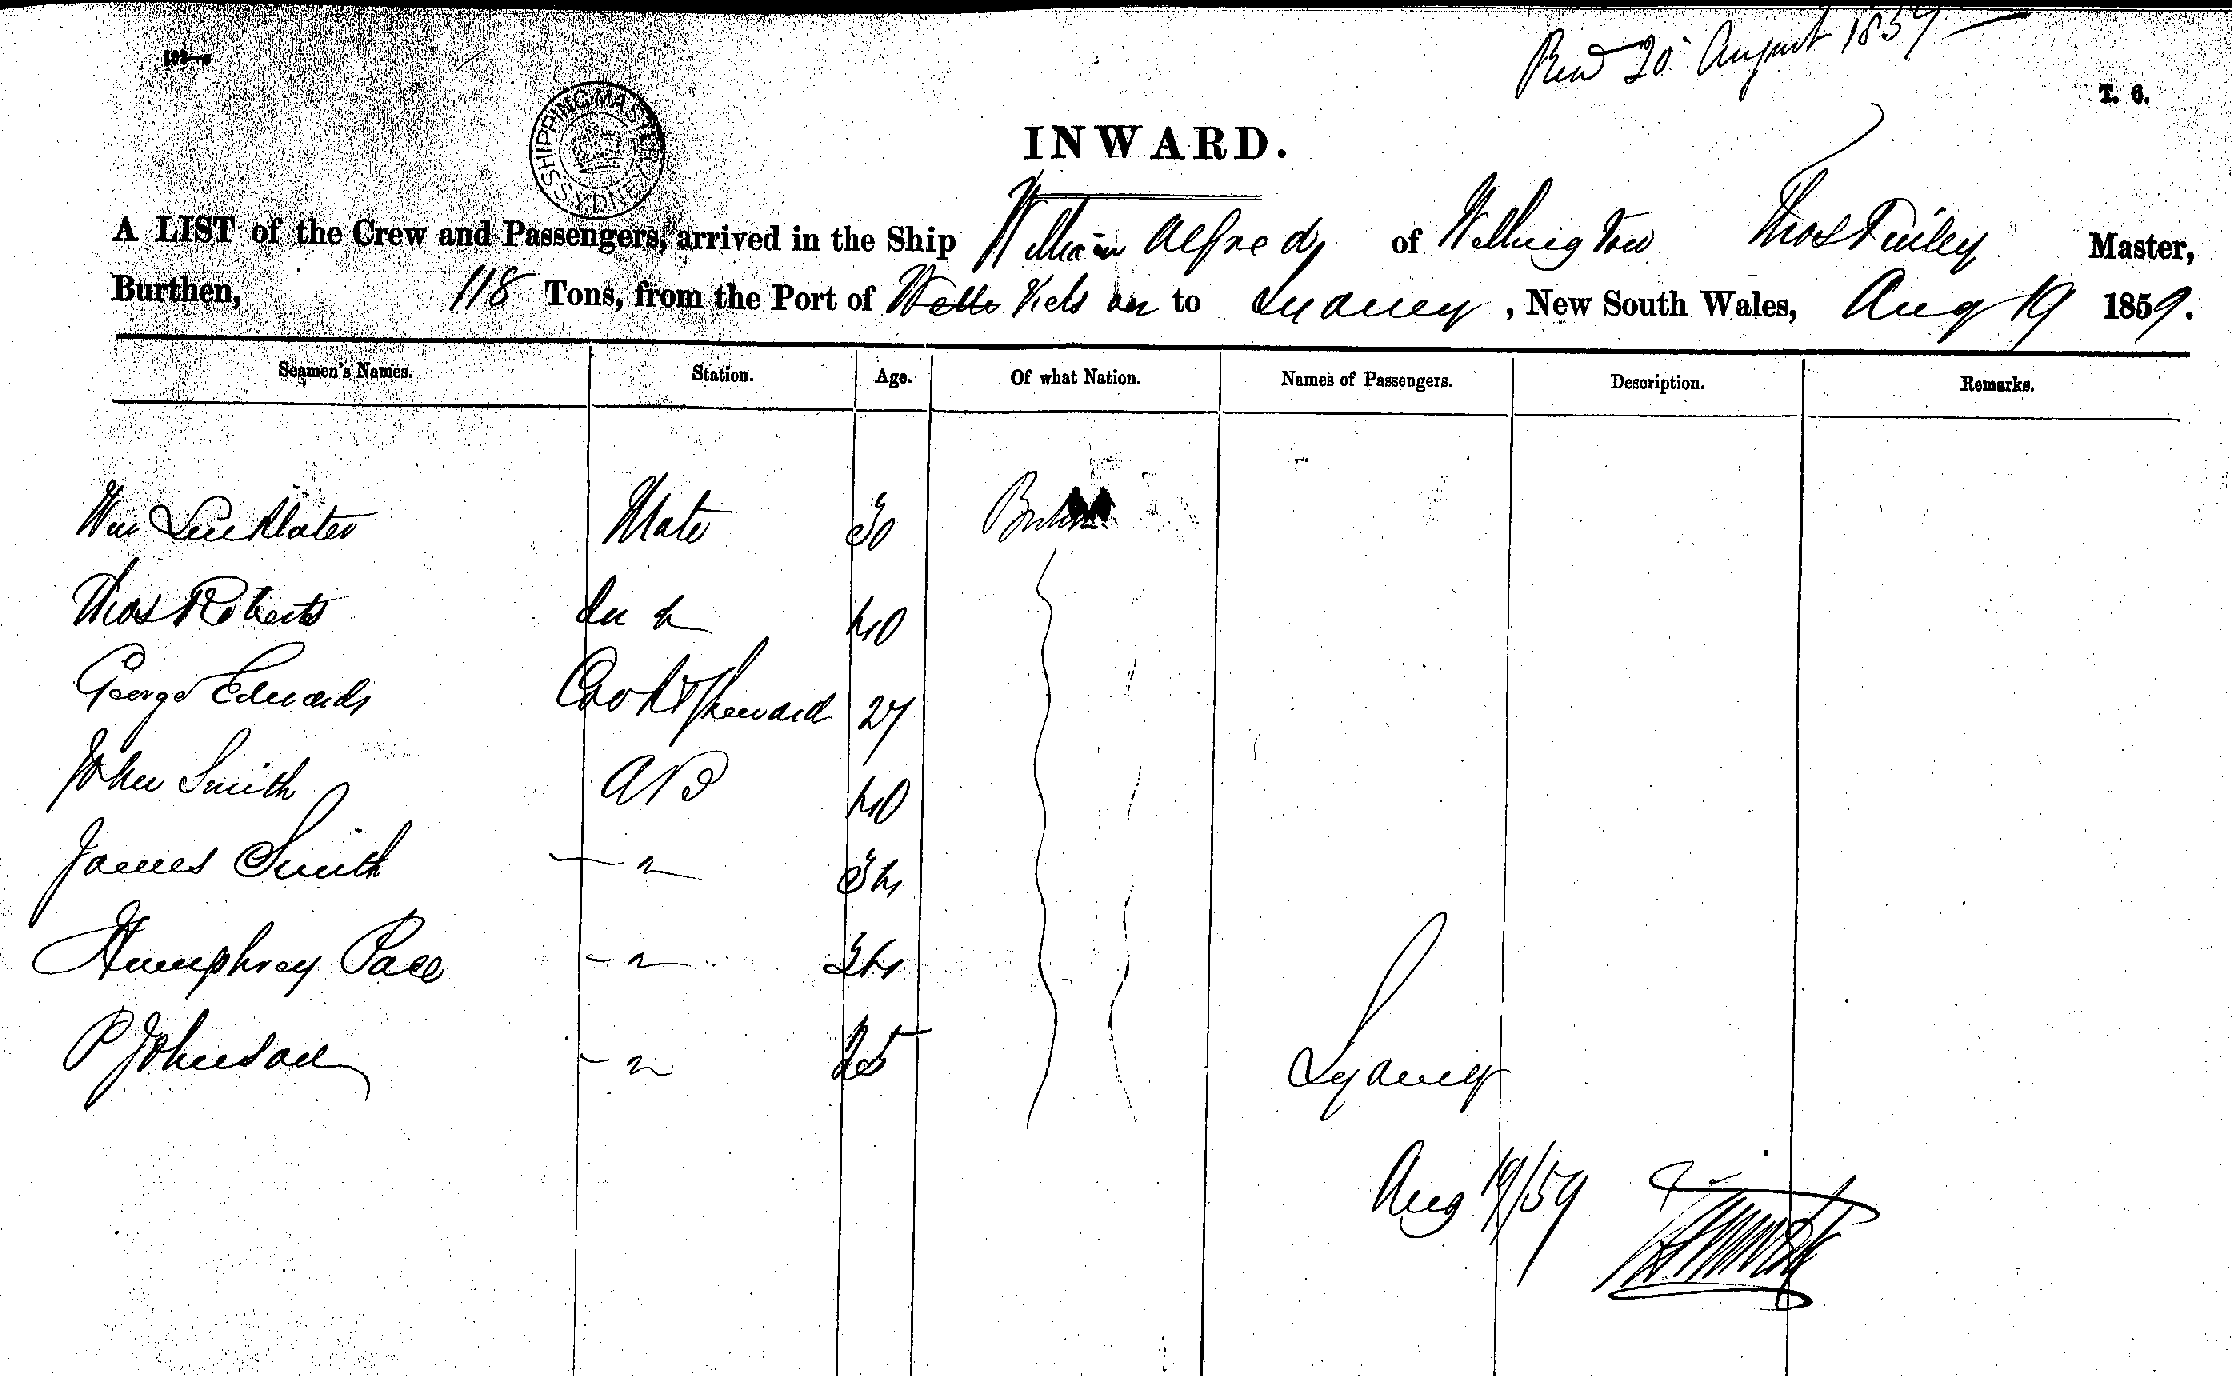 Recd 20 August 1859
T. 6.
SHIPPING MASTER SYDNEY
INWARD.
A LIST of the Crew and Passengers, arrived in the Ship William Alfred of Wellington Thos Finley Master,
Burthen, 118 Tons, from the Port of to Sydney, New South Wales, Aug 19 1859.
Seamen's Names. Station. Age. Of what Nation. Names of Passengers. Description. Remarks.
Wm Linklater Mate 30 British
Thos Roberts 40
George Edwards Cook & Steward 27
John Smith AB 40
James Smith - " 34
Humphrey Pace - " 34
P Johnson - " 25
Sydney
Aug 19/59